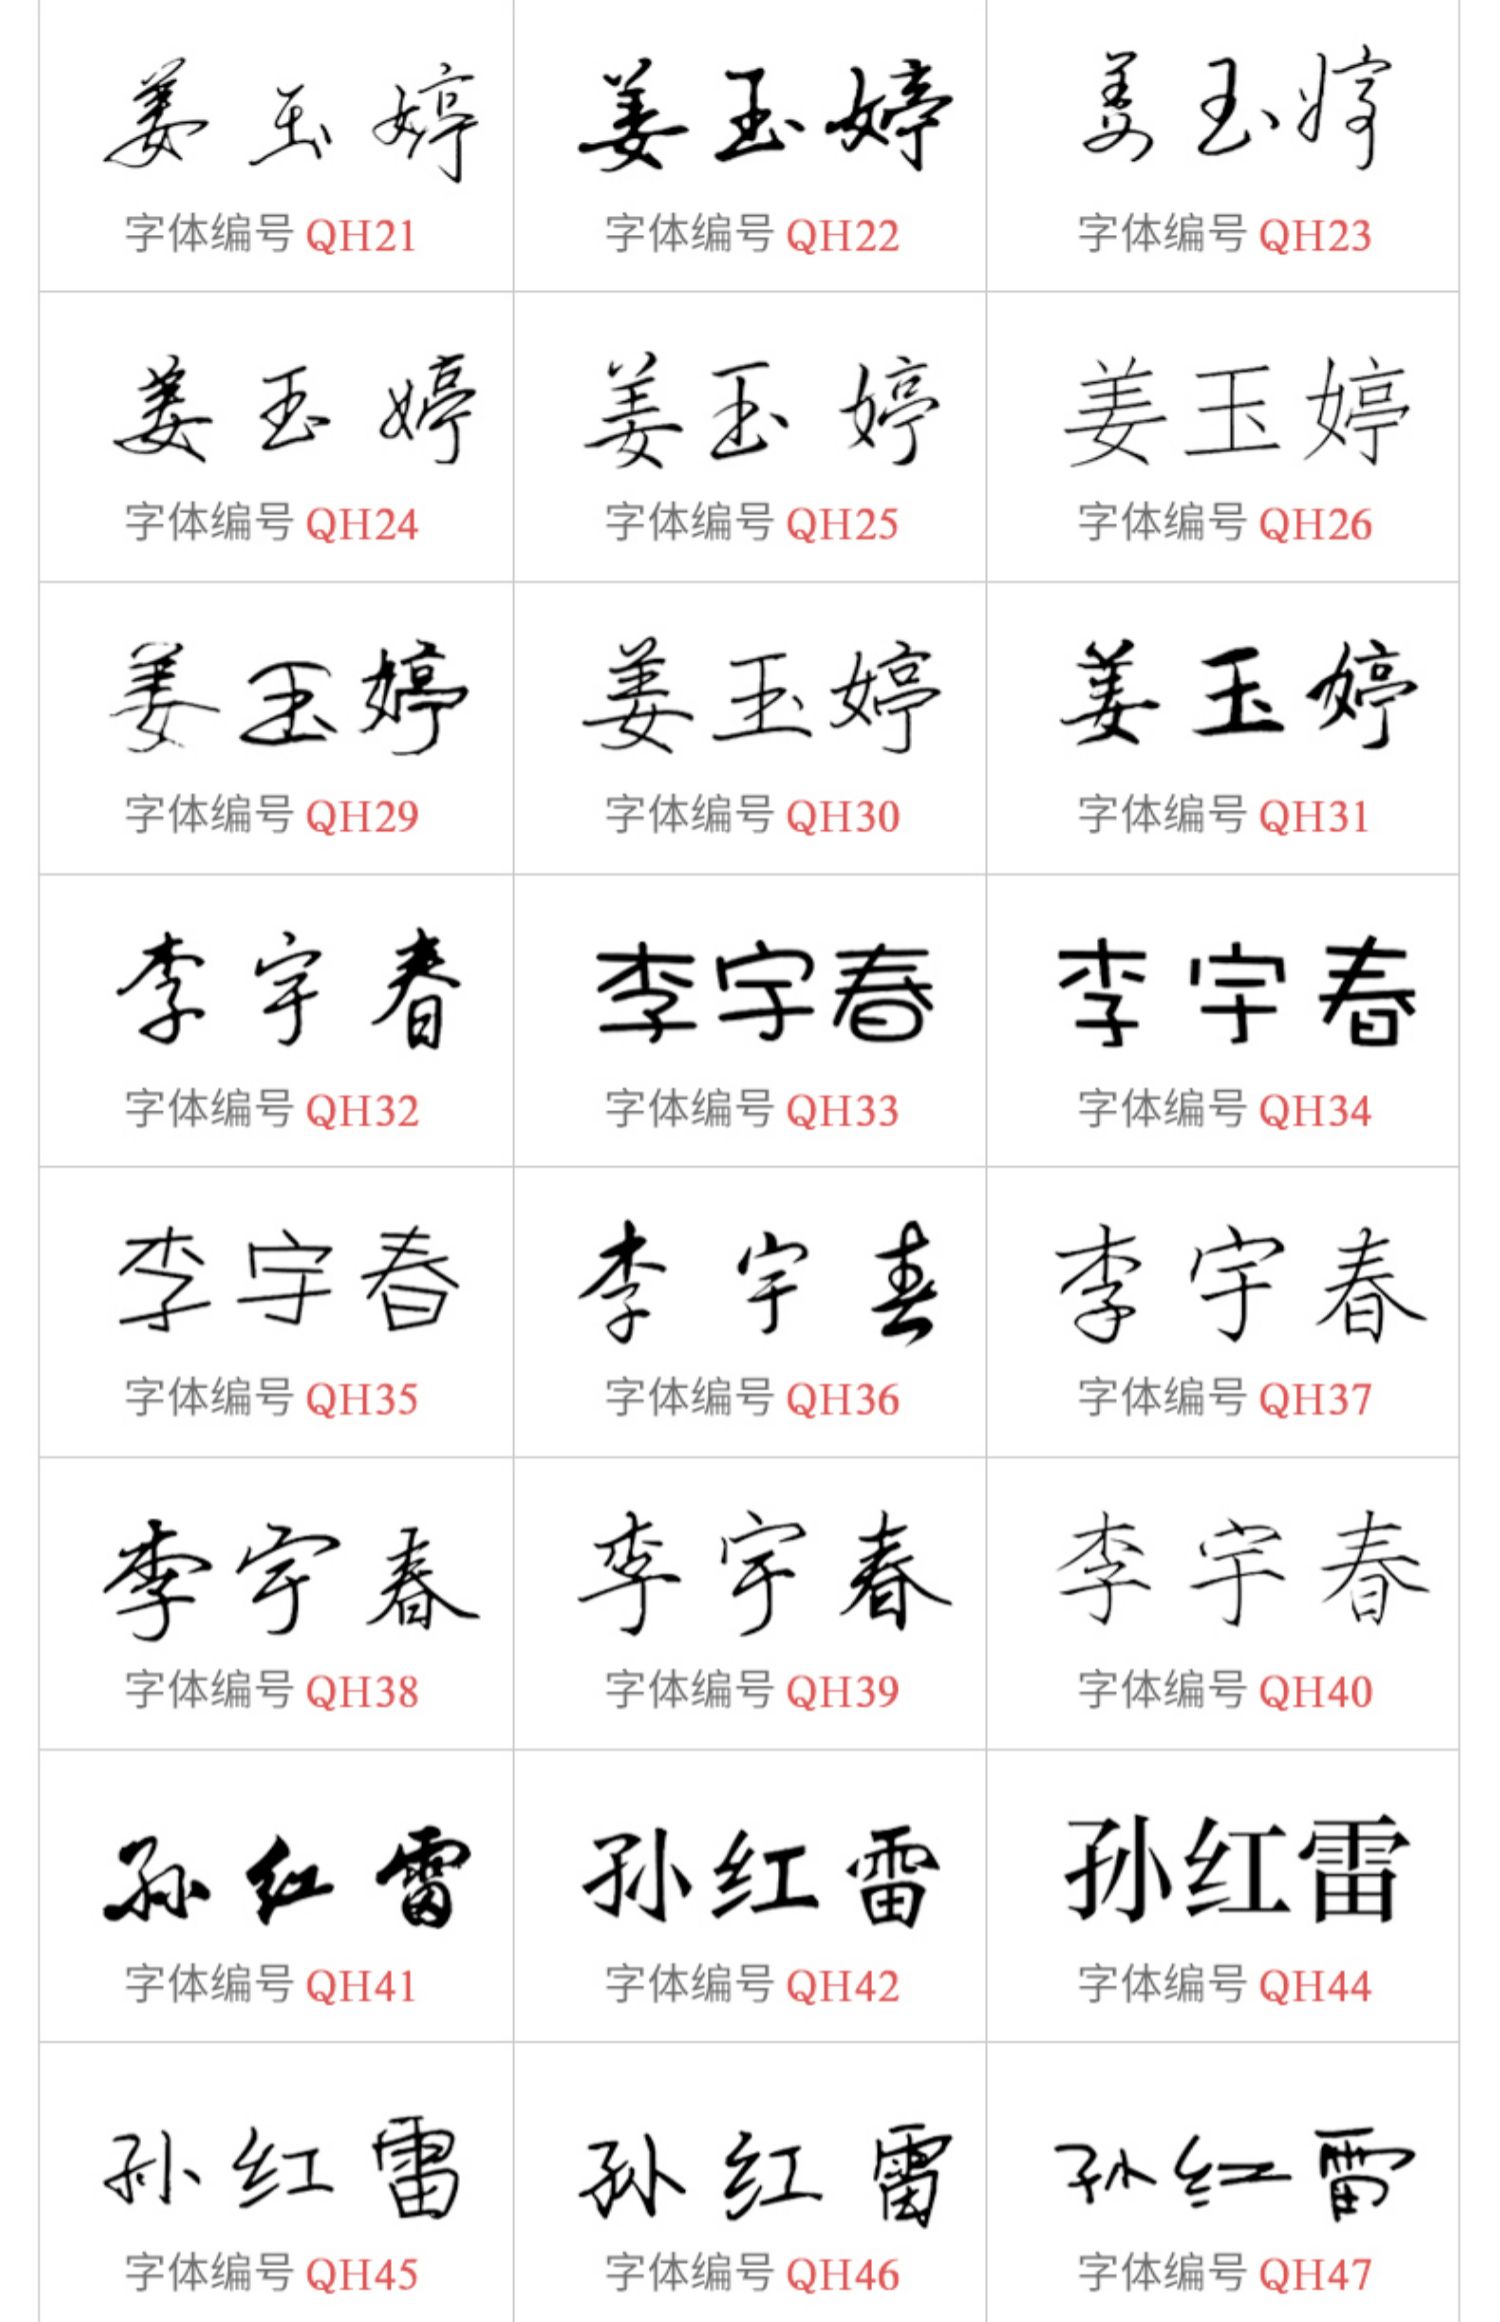 姜玉婷 姜玉婷 姜玉婷
字体编号 QH21 字体编号 QH22 字体编号 QH23
姜玉婷 姜玉婷 姜玉婷
字体编号 QH24 字体编号 QH25 字体编号 QH26
姜玉婷 姜玉婷 姜玉婷
字体编号 QH29 字体编号 QH30 字体编号 QH31
李宇春 李宇春 李宇春
字体编号 QH32 字体编号 QH33 字体编号 QH34
李宇春 李宇春 李宇春
字体编号 QH35 字体编号 QH36 字体编号 QH37
李宇春 李宇春 李宇春
字体编号 QH38 字体编号 QH39 字体编号 QH40
孙红雷 孙红雷 孙红雷
字体编号 QH41 字体编号 QH42 字体编号 QH44
孙红雷 孙红雷 孙红雷
字体编号 QH45 字体编号 QH46 字体编号 QH47